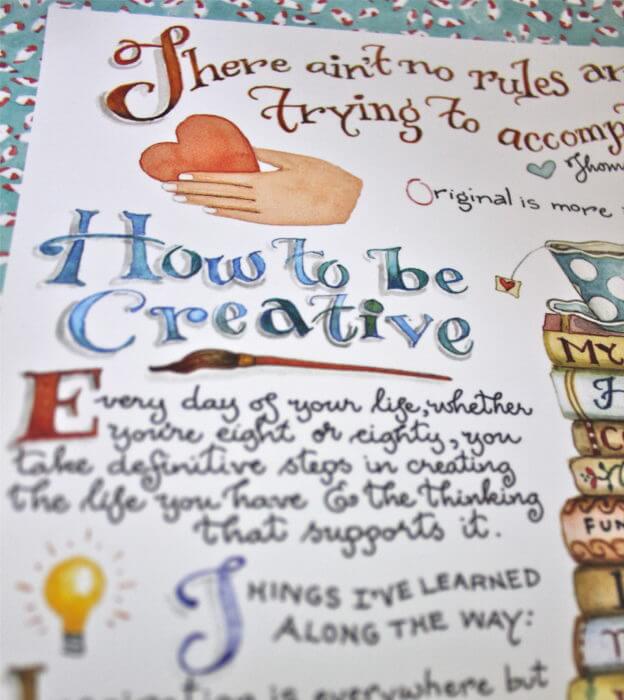 There ain't no rules
trying to accomp
Thom
Original is more
How to be
Creative
MY
Every day of your life, whether
you're eight or eighty, you
take definitive steps in creating
the life you have & the thinking
that supports it.
FUN
THINGS I'VE LEARNED
ALONG THE WAY:
Inspiration is everywhere but